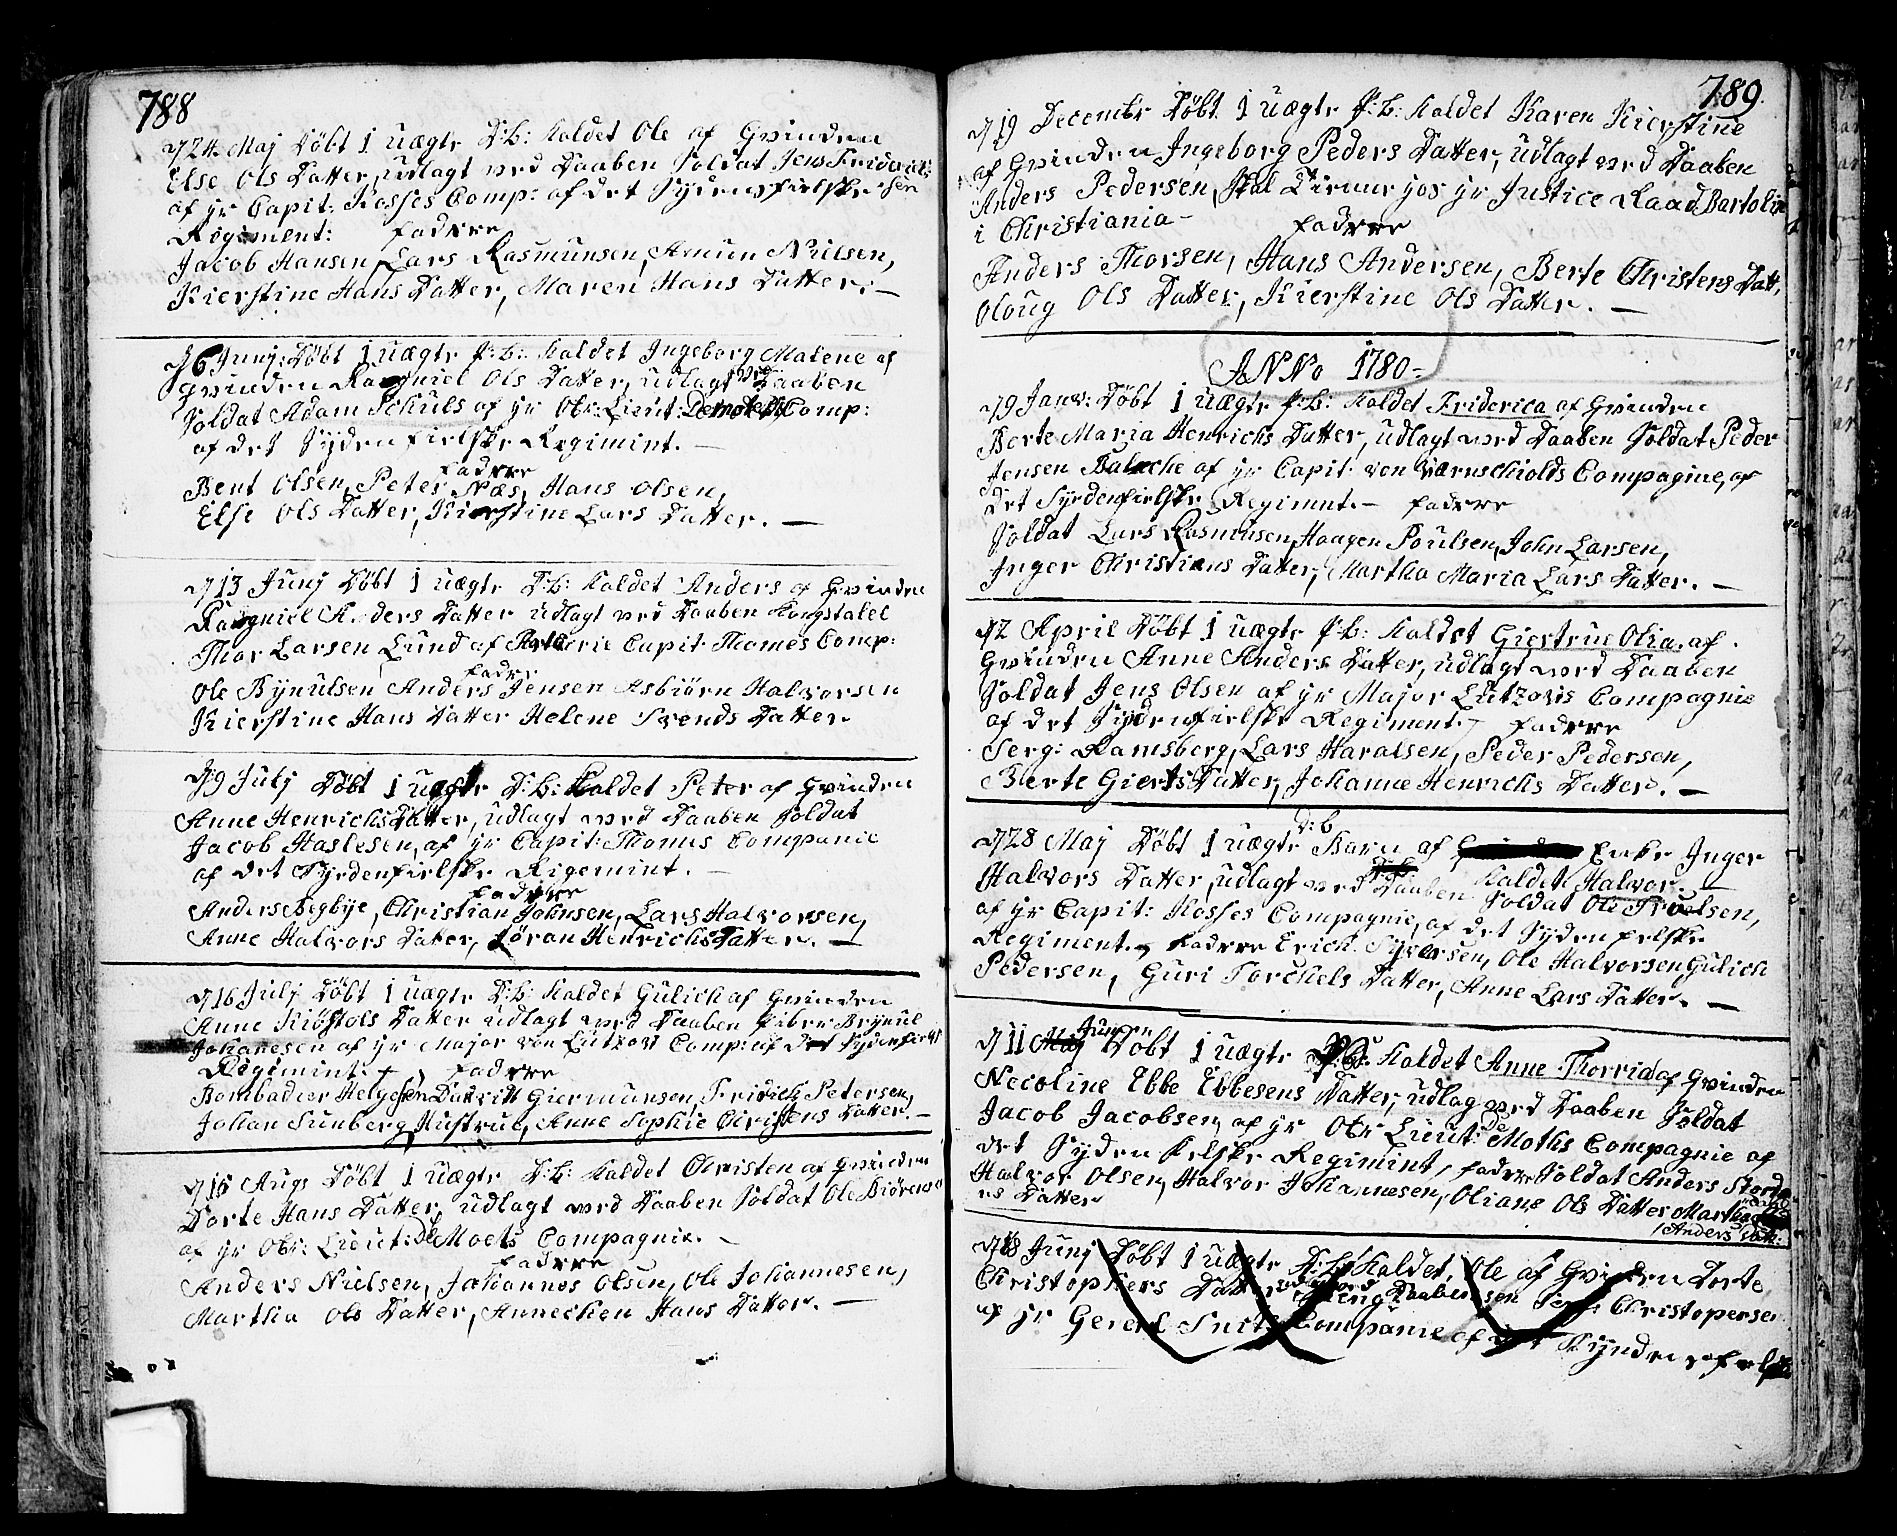 788
d 24 Maj Døbt 1 uægte D:b: kaldet Ole af Qvinden
Else Ols Datter, udlagt ved Daaben Soldat Jens Friderich-
sen
af Hr Capit: Kosses Comp: af det Sydenfielske
Regiment: Faddere
Jacob Hansen, Lars Rasmunsen, Amun Nielsen,
Kierstine Hans Datter, Maren Hans Datter. —
d 6 Junj: Døbt 1 uægte P:b: kaldet Ingeborg Malene af
Qvinden Ragniel Ols Datter, udlagt ved Daaben
Soldat Adam Schuls af Hr Obr: Lieut: Comp:
af det Sydenfielske Regimint. —
Faddere
Bent Olsen, Peter Næs, Hans Olsen,
Else Ols Datter, Kierstine Lars Datter. —
d 13 Junj Døbt 1 uægte D:b: kaldet Anders af Qvinden
Ragniel Anders Datter udlagt ved Daaben
Thor Larsen Lund af Capit Thomes Comp:
Faddre
Ole Bynulsen Anders Jensen Asbiørn Halvorsen
Kierstine Hans Datter Helene Svends Datter
d 9 Julj Døbt 1 uægte D:b: kaldet Peter af Qvinden
Anne Henrichs Datter, udlagt ved Daaben Soldat
Jacob Haslesen, af Hr Capit: Thomes Companie
af det Sydenfielske Rigemint. —
Faddere
Anders Bye, Christian Johnsen, Lars Halvorsen,
Anne Halvors Datter, Søran Henrichs Datter. —
d 16 Julj Døbt 1 uægte D:b: kaldet Gulich af Qvinden
Anne Kiøstols Datter udlagt ved Daaben Brynul
Johanesen af Hr Major von Lutzows Comp: af det Sydenfielske
Regimint. Faddere
Bombadier Helgesen, Giermunsen, Fridich Petersen,
Johan Sunbergs Hustrue, Anne Sophie Christens Datter. —
d 15 Augs Døbt 1 uægte D:b: kaldet Christen af Qvinden
Dorte Hans Datter, udlagt ved Daaben Soldat Ole Biørensen
af Hr Obr: Lieut: De Moets Compagnie. —
Faddere
Anders Nielsen, Johannes Olsen, Ole Johannesen,
Martha Ols Datter, Annechen Hans Datter. —
789.
d 19 Decembr Døbt 1 uægte P:b: kaldet Karen Kierstine
af Qvinden Ingeborg Peders Datter, udlagt ved Daaben
Anders Pedersen, skal tiene hos Hr Justice Raad Bartolin
i Christiania — Faddere
Anders Thorsen, Hans Andersen, Berte Christens Datt,
Oloug Ols Datter, Kierstine Ols Datter. —
ANNo 1780 =
d 9 Janv: Døbt 1 uægte P:b: kaldet Friderica af Qvinden
Berte Maria Henrichs Datter, udlagt ved Daaben Soldat Peder
Jensen af Hr Capit. von Værnschiolds Compagnie, af
det Sydenfielske Regimnt. — Faddere
Soldat Lars Rasmunsen, Haagen Poulsen, John Larsen,
Inger Christians Datter, Martha Maria Lars Datter. —
d 2 April Døbt 1 uægte P:b: kaldet Giertrue Olia af
Qvinden Anne Anders Datter, udlagt ved Daaben
Soldat Jens Olsen af Hr Major Lutzows Compagnie
af det Sydenfielske Regiment. — Faddere
Serg: Ramsberg, Lars Haralsen, Peder Pedersen,
Berte Gierts Datter, Johanne Henrichs Datter. —
D:b
d 28 Maj Døbt 1 uægte Barn af Enke Inger
kaldet Halvor. —
Halvors Datter, udlagt ved Daaben Soldat Ole Truelsen,
af Hr Capit: Kosses Compagnie, af det Sydenfelske
Regiment. Faddere Erich Syversen, Ole Halvorsen Gulich
Pedersen, Guri Torchels Datter, Anne Lars Datter. —
Junj
d 11 Maj Døbt 1 uægte P:b: kaldet Anne Thorrid af Qvinden
Necoline Ebbe Ebbesens Datter, udlag ved Daaben Soldat
Jacob Jacobsen, af Hr Obr Lieut: De Moths Compagnie af
det Syden felske Regimint, Faddere Soldat Anders
Halvor Olsen, Halvor Johannesen, Oliane Ols Datter Martha
Datter
Anders Datt:
d 18 Junj Døbt 1 uægte D:b: kaldet Ole af Qvinden Dorte
Christophers Datter Daaben Christopersen
af Hr Gererl Companie af det Syndenfelske